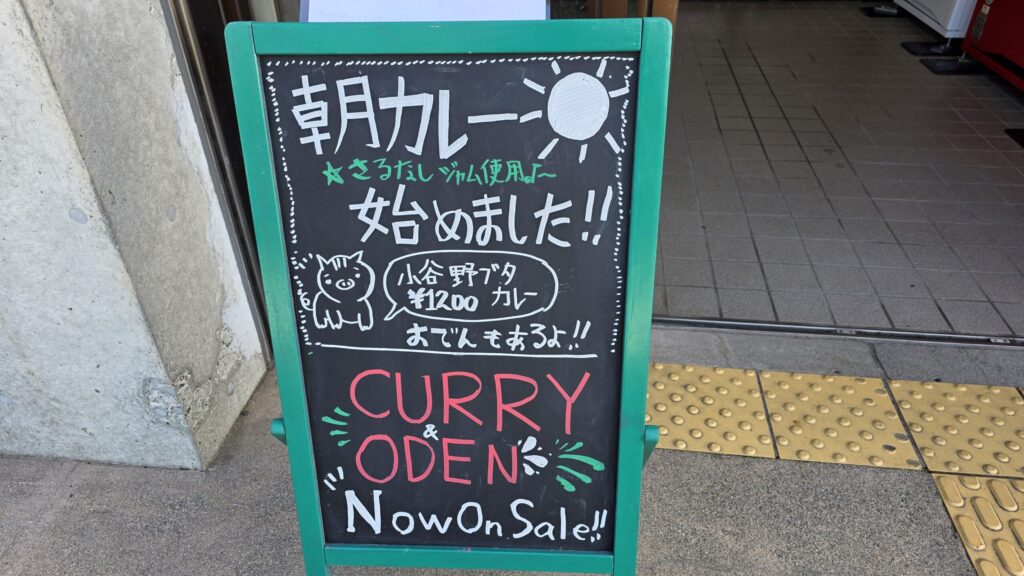 朝カレー
☆さるなしジャム使用♪~
始めました!!
小谷野ブタ
¥1200 カレー
おでんもあるよ!!
CURRY
&
ODEN
Now On Sale!!